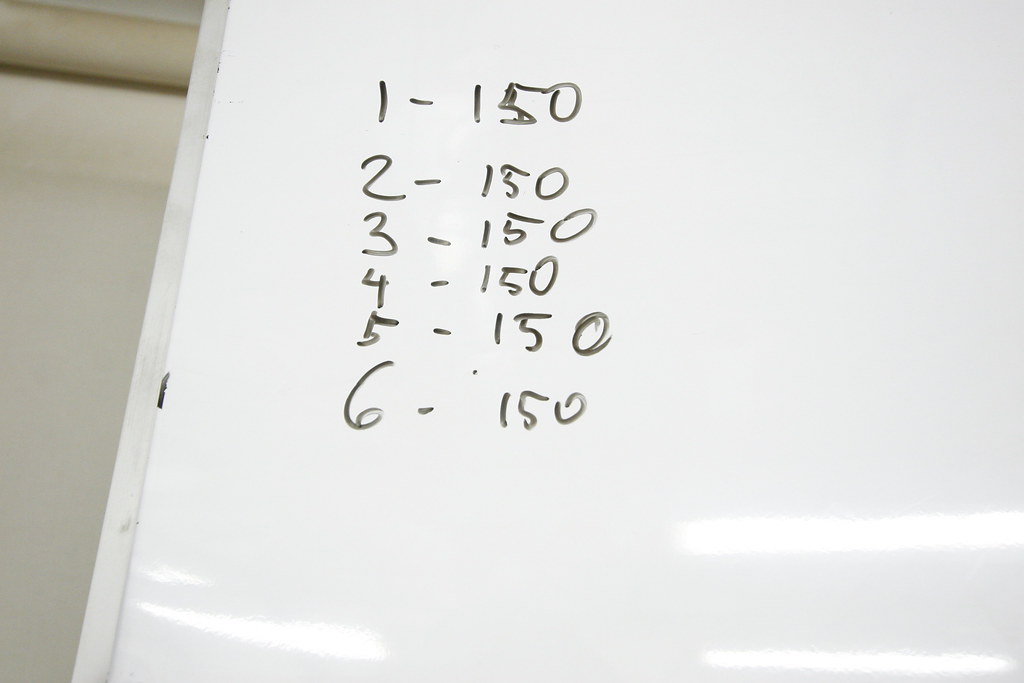 1 - 150
2 - 150
3 - 150
4 - 150
5 - 150
6 - 150